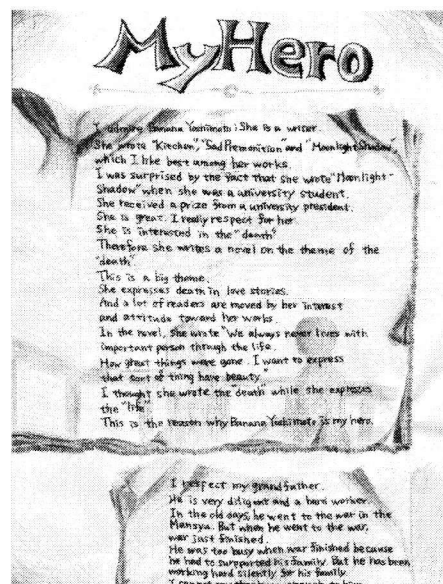 My Hero
I admire Banana Yoshimoto. She is a writer.
She wrote "Kitchen," "Sad Premonition" and "Moonlight Shadow",
which I like best among her works.
I was surprised by the fact that she wrote "Moonlight-
Shadow" when she was a university student.
She received a prize from a university president.
She is great. I really respect for her.
She is interested in the "death".
Therefore she writes a novel on the theme of the
"death".
This is a big theme.
She expresses death in love stories.
And a lot of readers are moved by her interest
and attitude toward her works.
In the novel, she wrote "We always never lives with
important person through the life.
How great things were gone. I want to express
that sort of thing have beauty."
I thought she wrote the "death" while she expresses
the "life".
This is the reason why Banana Yoshimoto is my hero.
I respect my grandfather.
He is very diligent and a hard worker.
In the old days, he went to the war in the
Mansyu. But when he went to the war,
war just finished.
He was too busy when war finished because
he had to supported his family. But he has been
working hard silently for his family.